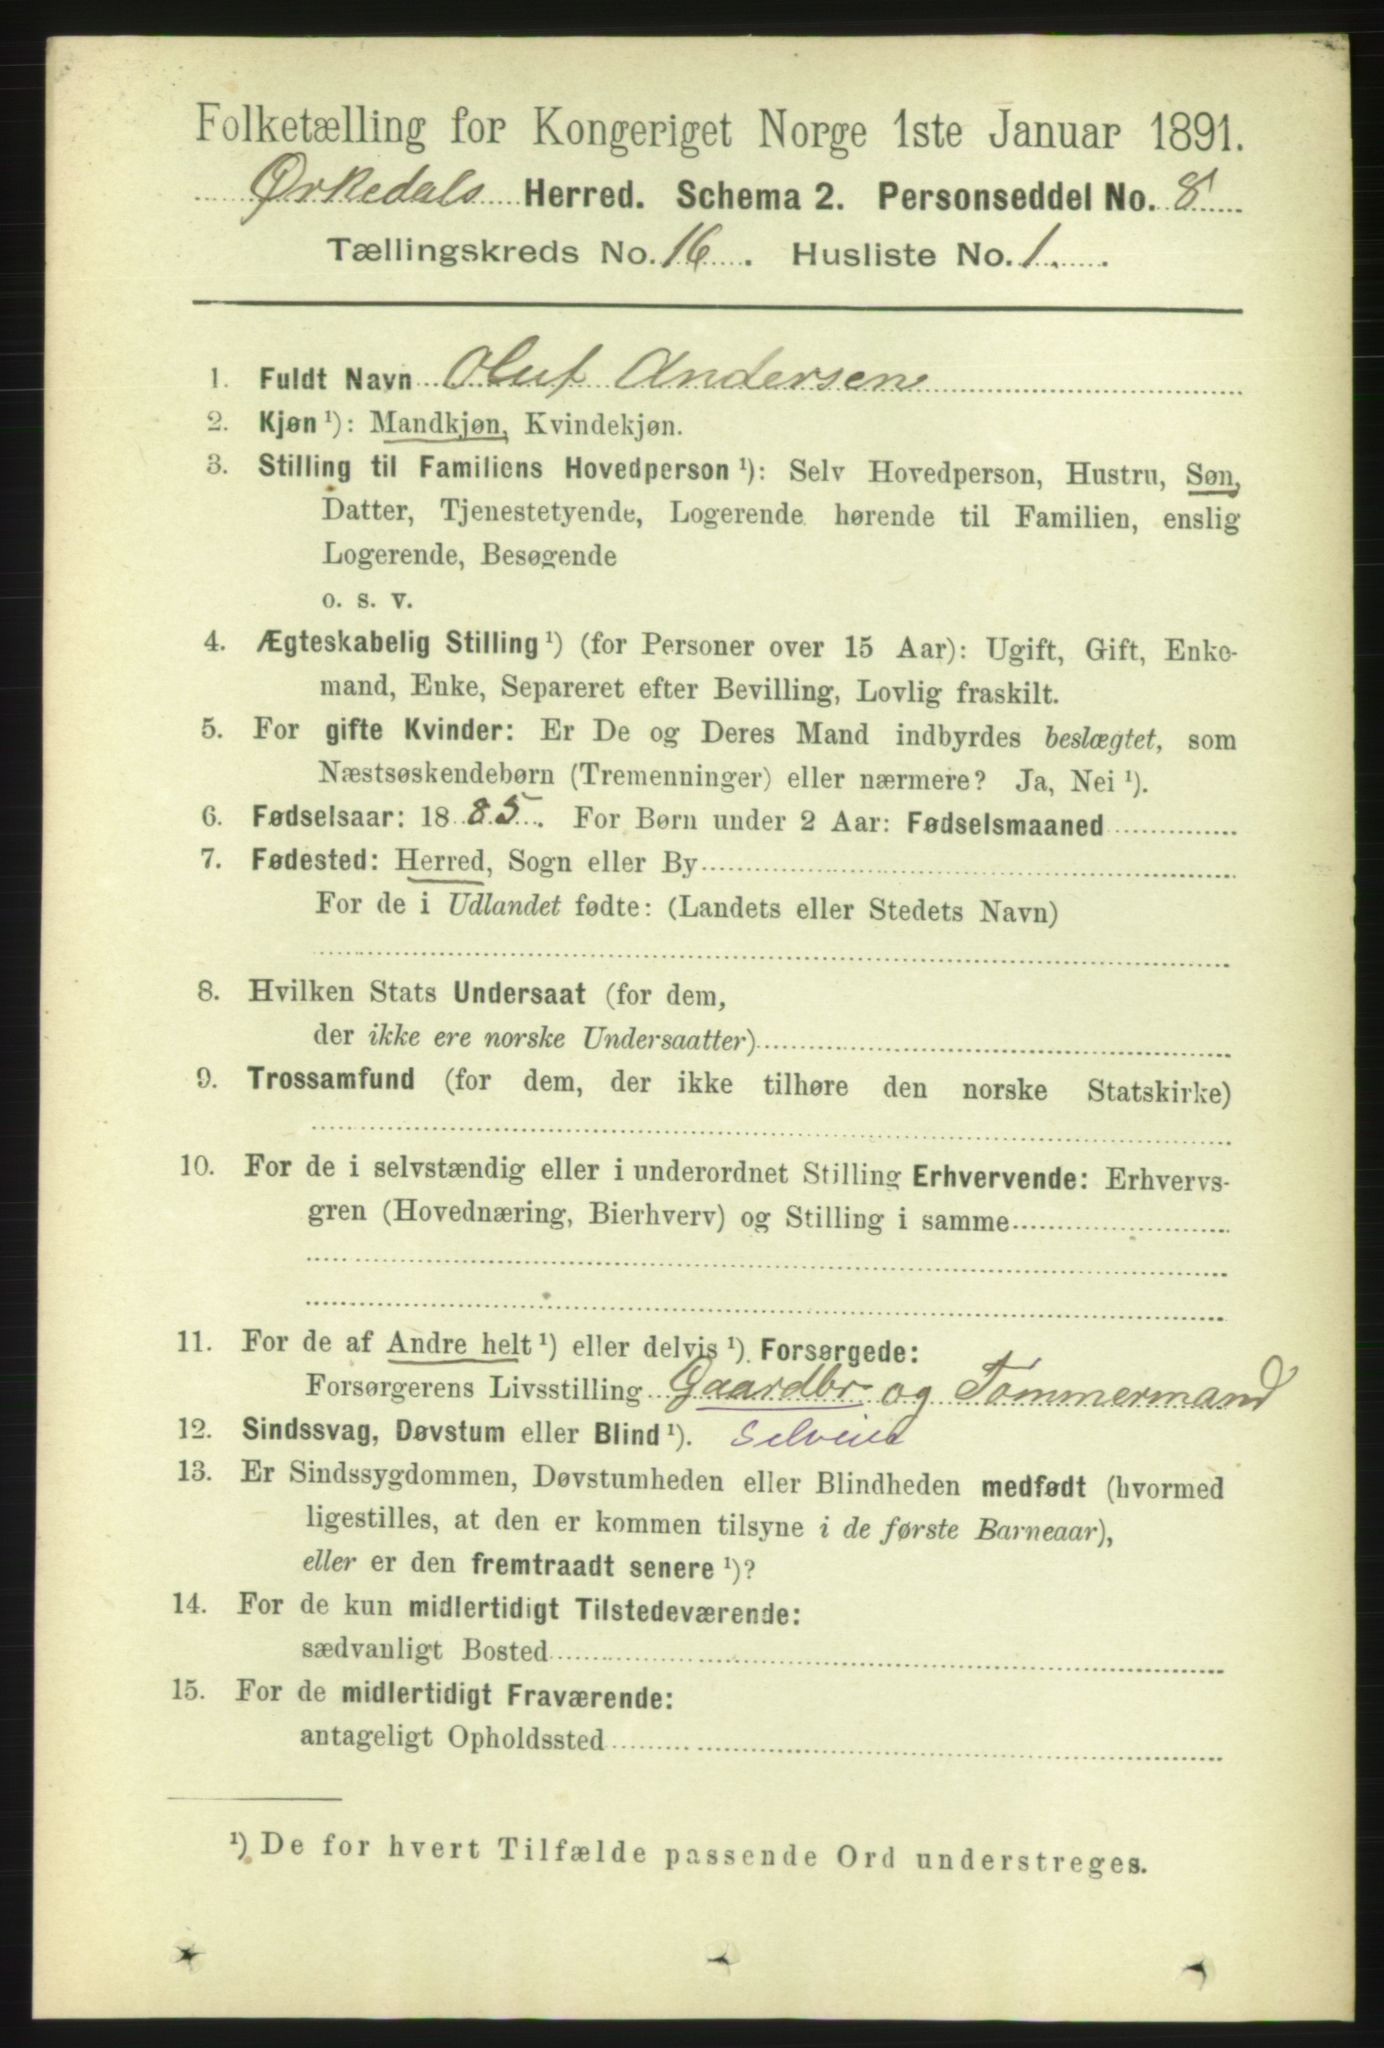 Folketælling for Kongeriget Norge 1ste Januar 1891.
Ørkedals Herred. Schema 2. Personseddel No. 8
Tællingskreds No. 16. Husliste No. 1.
1. Fuldt Navn Oluf Andersen
2. Kjøn ¹): Mandkjøn, Kvindekjøn.
3. Stilling til Familiens Hovedperson ¹): Selv Hovedperson, Hustru, Søn,
Datter, Tjenestetyende, Logerende hørende til Familien, enslig
Logerende, Besøgende
o. s. v.
4. Ægteskabelig Stilling ¹) (for Personer over 15 Aar): Ugift, Gift, Enke-
mand, Enke, Separeret efter Bevilling, Lovlig fraskilt.
5. For gifte Kvinder: Er De og Deres Mand indbyrdes beslægtet, som
Næstsøskendebørn (Tremenninger) eller nærmere? Ja, Nei ¹).
6. Fødselsaar: 1885. For Børn under 2 Aar: Fødselsmaaned
7. Fødested: Herred, Sogn eller By
For de i Udlandet fødte: (Landets eller Stedets Navn)
8. Hvilken Stats Undersaat (for dem,
der ikke ere norske Undersaatter)
9. Trossamfund (for dem, der ikke tilhøre den norske Statskirke)
10. For de i selvstændig eller i underordnet Stilling Erhvervende: Erhvervs-
gren (Hovednæring, Bierhverv) og Stilling i samme
11. For de af Andre helt ¹) eller delvis ¹) Forsørgede:
Forsørgerens Livsstilling Gaardbr og Tømmermand
12. Sindssvag, Døvstum eller Blind ¹). Selveier
13. Er Sindssygdommen, Døvstumheden eller Blindheden medfødt (hvormed
ligestilles, at den er kommen tilsyne i de første Barneaar),
eller er den fremtraadt senere ¹)?
14. For de kun midlertidigt Tilstedeværende:
sædvanligt Bosted
15. For de midlertidigt Fraværende:
antageligt Opholdssted
¹) De for hvert Tilfælde passende Ord understreges.